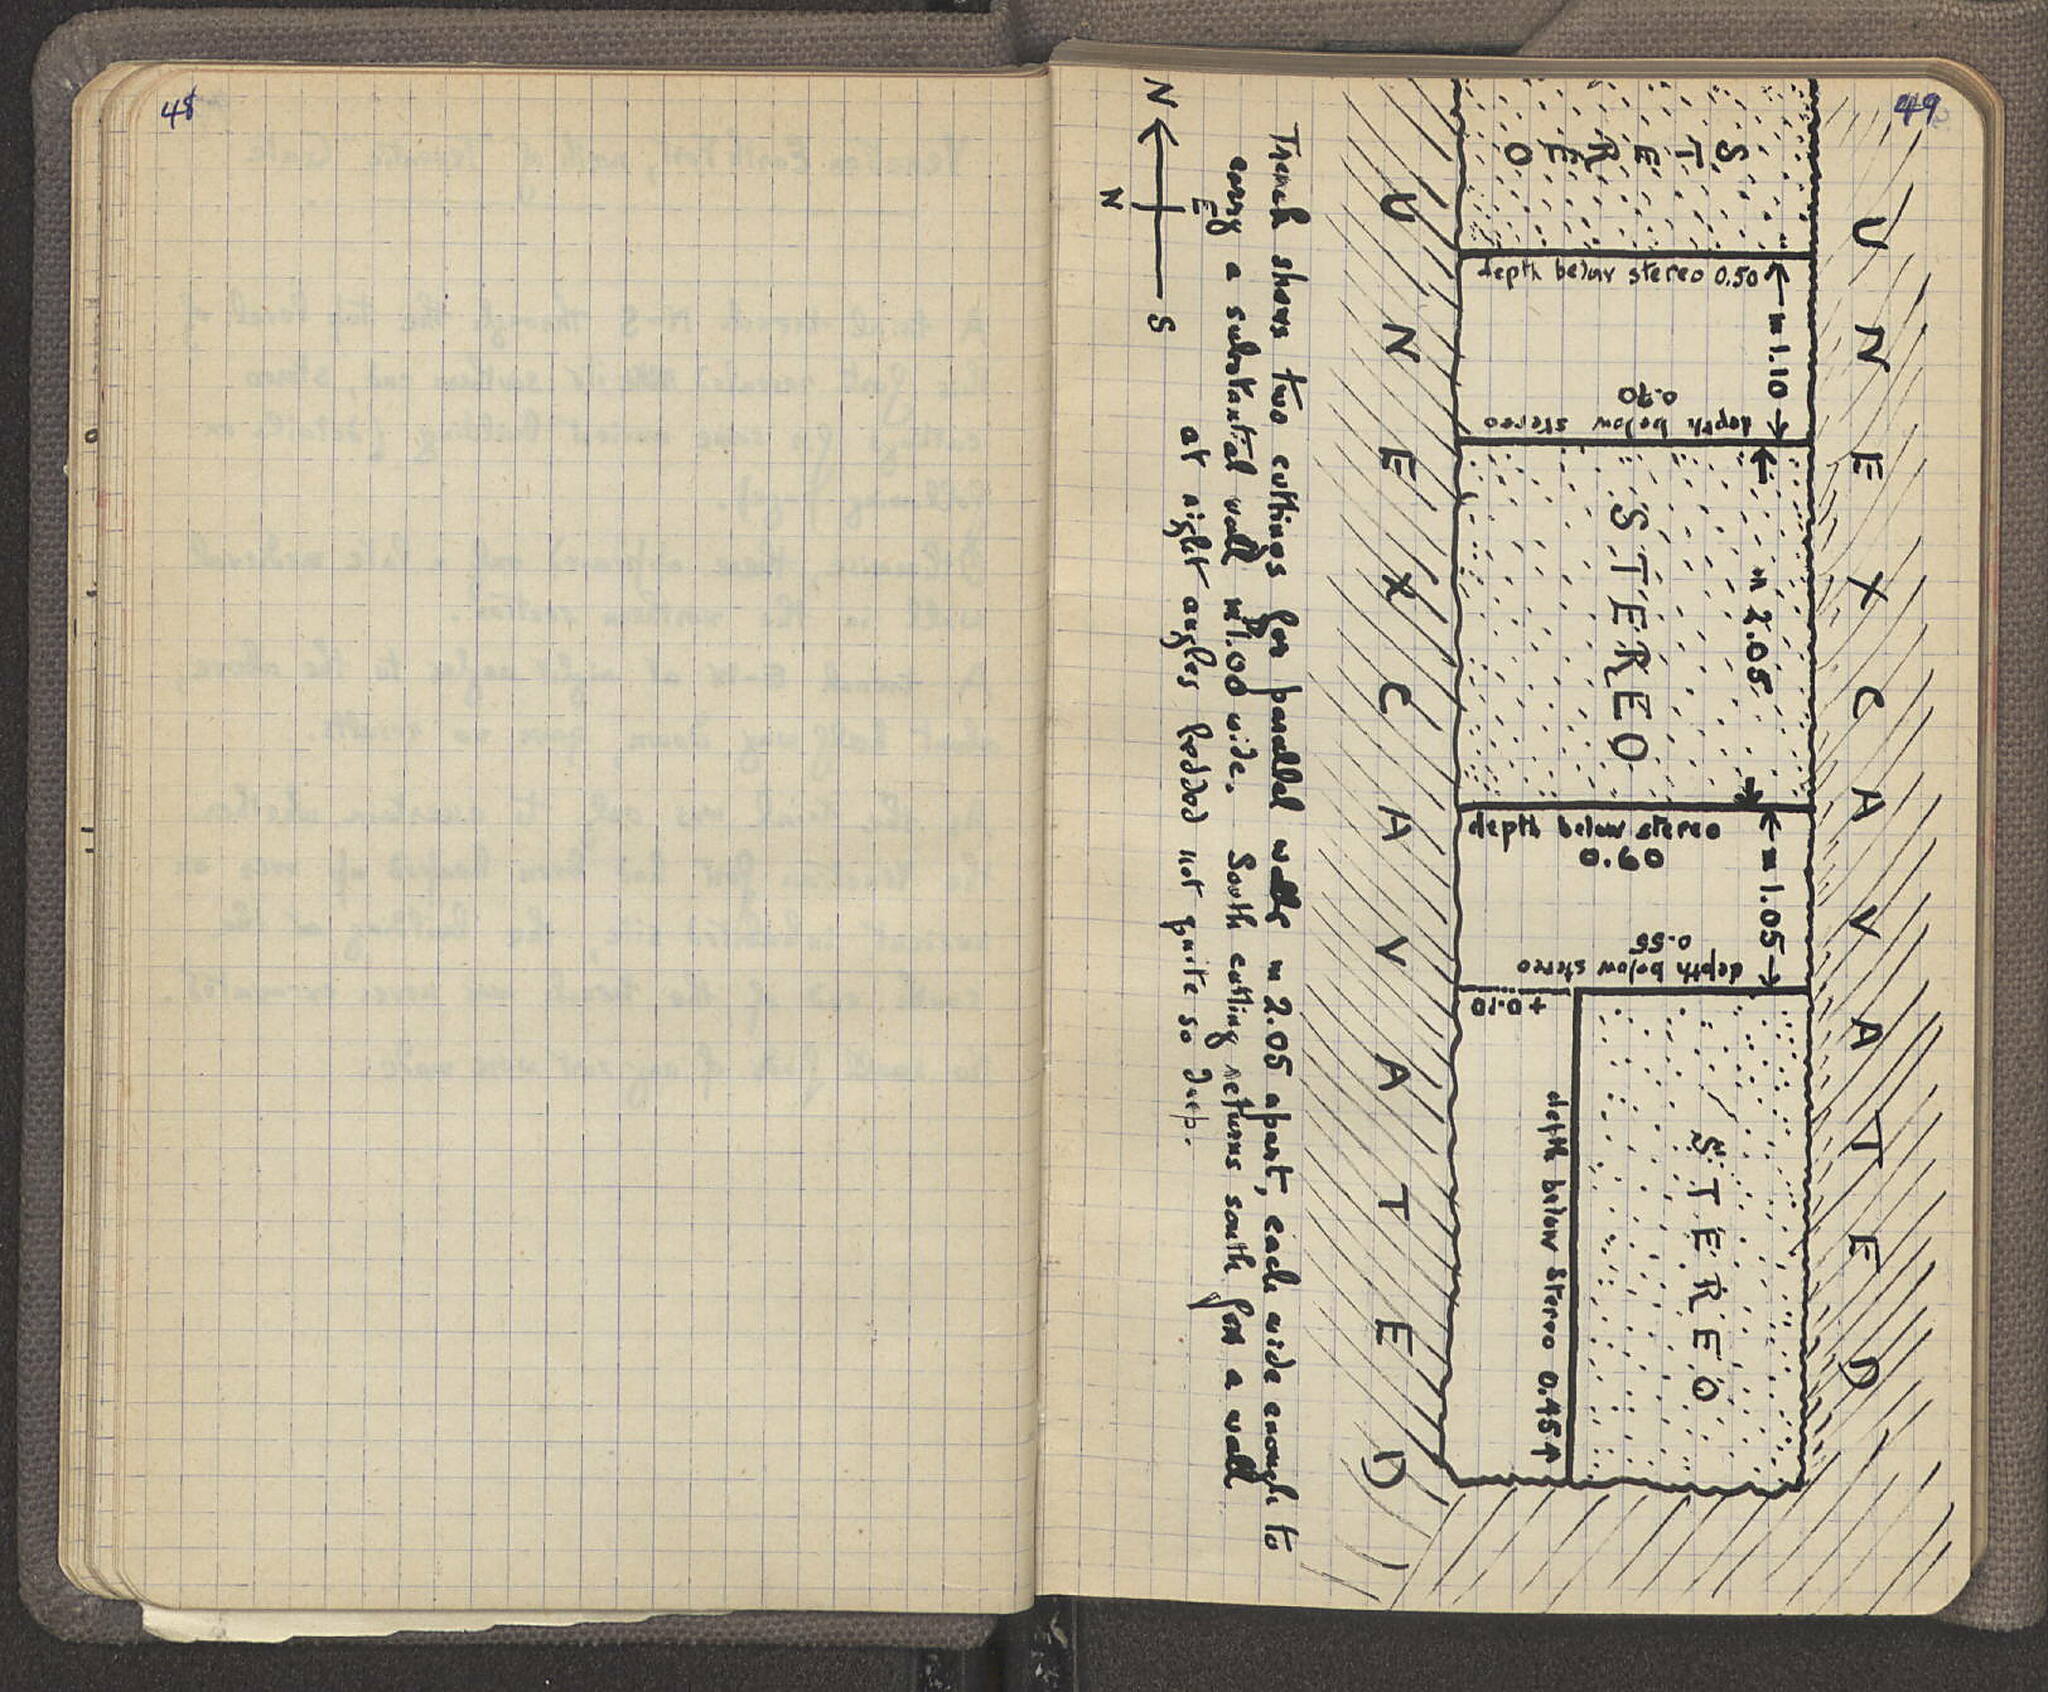 48
49
UNEXCAVATED
STEREO
depth below stereo 0.50
m 1.10
depth below stereo
0.70
STEREO
m 2.05
depth below stereo
0.60
m 1.05
depth below stereo
0.55
+0.10
STEREO
depth below stereo 0.45
UNEXCAVATED
Trench shows two cuttings for parallel walls m 2.05 apart, each wide enough to
carry a substantial wall m 1.00 wide. South cutting returns south for a wall
at right angles bedded not quite so deep.
N
S
E